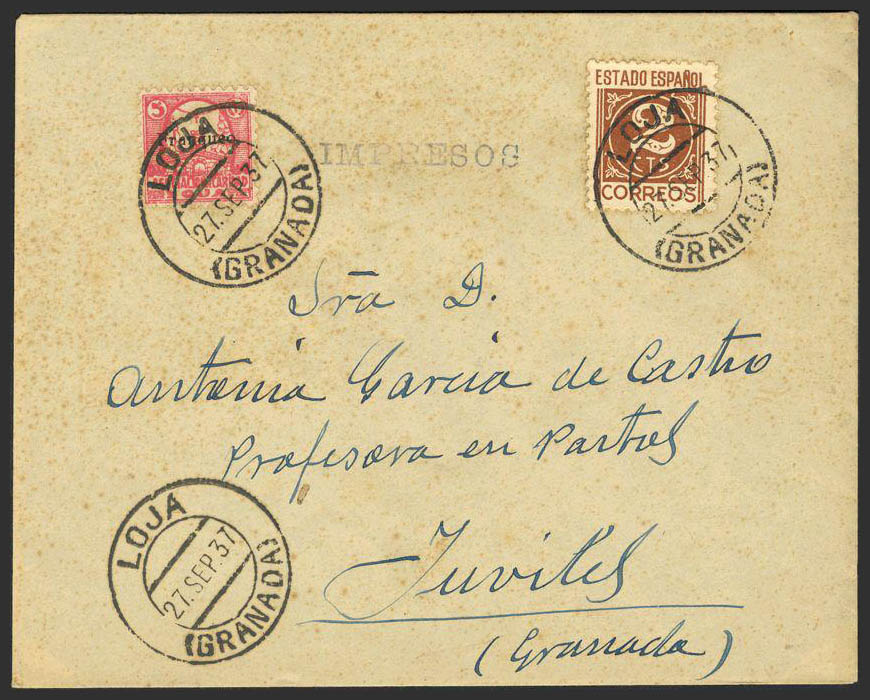 LOJA
27.SEP.37
(GRANADA)
IMPRESOS
ESTADO ESPAÑOL
2
CTS
CORREOS
LOJA
27.SEP.37
(GRANADA)
Sra D.
Antonia Garcia de Castro
Profesora en Partos
Juviles
(Granada)
LOJA
27.SEP.37
(GRANADA)